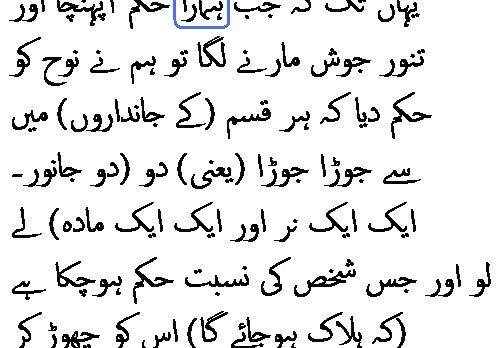 یہاں تک کہ جب ہمارا حکم آپہنچا اور
تنور جوش مارنے لگا تو ہم نے نوح کو
حکم دیا کہ ہر قسم (کے جانداروں) میں
سے جوڑا جوڑا (یعنی) دو (دو جانور۔
ایک ایک نر اور ایک ایک مادہ) لے
لو اور جس شخص کی نسبت حکم ہوچکا ہے
(کہ ہلاک ہوجائے گا) اس کو چھوڑ کر